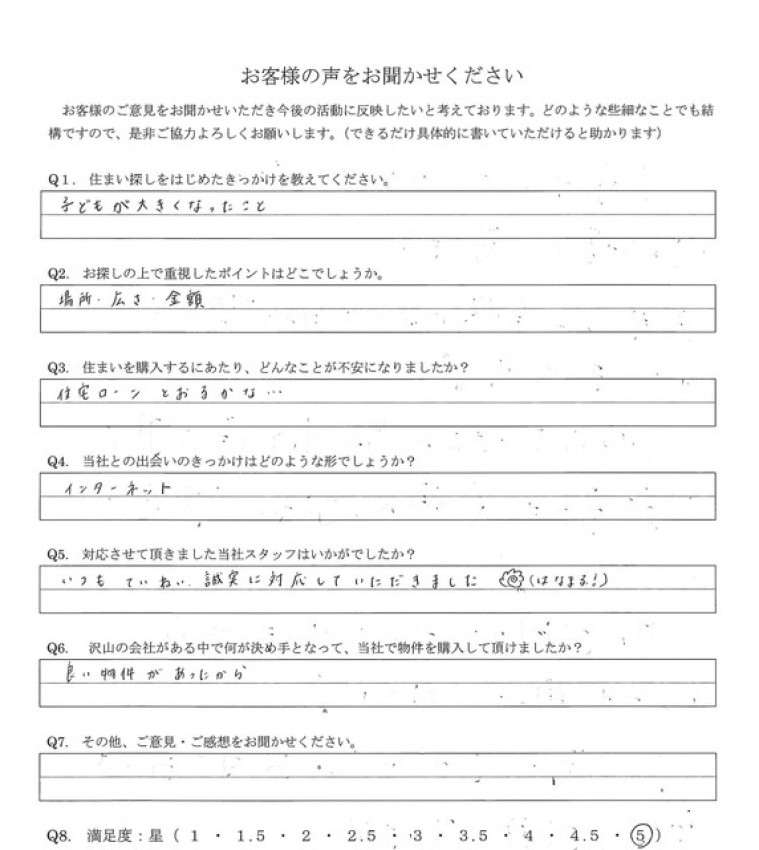 お客様の声をお聞かせください
お客様のご意見をお聞かせいただき今後の活動に反映したいと考えております。どのような些細なことでも結
構ですので、是非ご協力よろしくお願いします。（できるだけ具体的に書いていただけると助かります）
Q1. 住まい探しをはじめたきっかけを教えてください。
子どもが大きくなったこと
Q2. お探しの上で重視したポイントはどこでしょうか。
場所・広さ・金額
Q3. 住まいを購入するにあたり、どんなことが不安になりましたか？
住宅ローン とおるかな…
Q4. 当社との出会いのきっかけはどのような形でしょうか？
インターネット
Q5. 対応させて頂きました当社スタッフはいかがでしたか？
いつも ていねい、誠実に対応していただきました (はなまる!)
Q6. 沢山の会社がある中で何が決め手となって、当社で物件を購入して頂けましたか？
良い物件があったから
Q7. その他、ご意見・ご感想をお聞かせください。
Q8. 満足度：星（ 1 ・ 1.5 ・ 2 ・ 2.5 ・ 3 ・ 3.5 ・ 4 ・ 4.5 ・ 5 ）